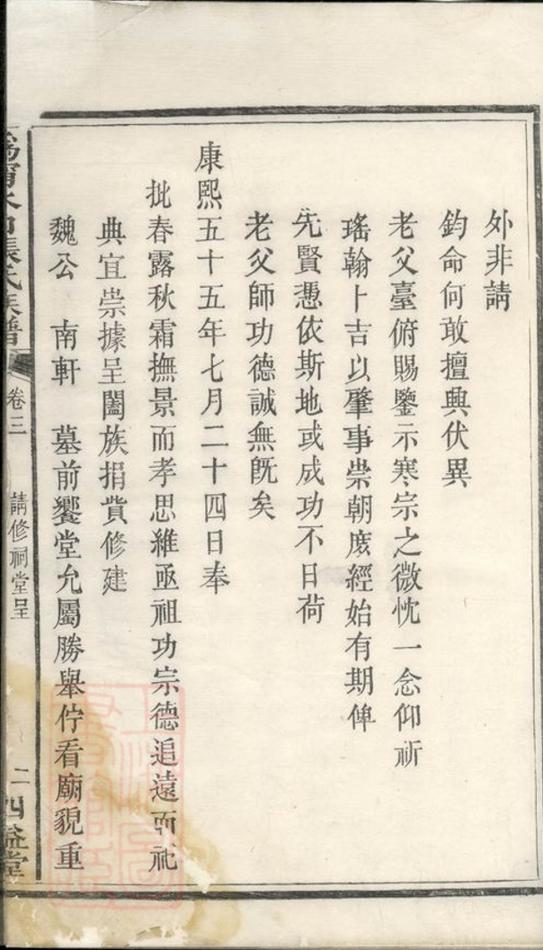 外非請
鈞命何敢擅興伏異
老父臺俯賜鑒示寒宗之微忱一念仰祈
瑤翰卜吉以肇事崇朝庻經始有期俾
先賢憑依斯地或成功不日荷
老父師功德誠無旣矣
康熙五十五年七月二十四日奉
批春露秋霜撫景而孝思維亟祖功宗德追遠而祇
典宜崇據呈闔族捐貲修建
魏公 南軒 墓前饗堂允屬勝舉佇看廟貌重
張氏族譜 卷三 請修祠堂呈 二 四益堂